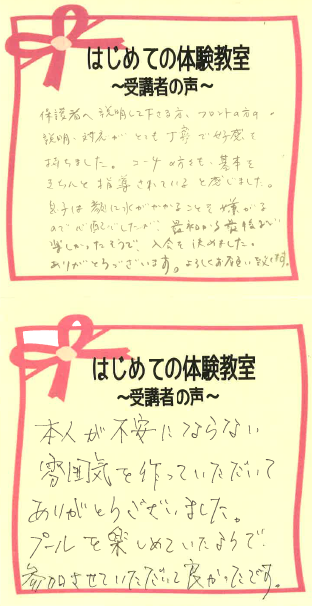 はじめての体験教室
～受講者の声～
保護者へ説明して下さる方、フロントの方の
説明・対応がとても丁寧で好感を
持ちました。コーチの方も、基本を
きちんと指導されていると感じました。
息子は顔に水がかかることを嫌がる
ので心配でしたが、最初から最後まで
楽しかったようで、入会を決めました。
ありがとうございます。よろしくお願い致します。
はじめての体験教室
～受講者の声～
本人が不安にならない
雰囲気を作っていただいて
ありがとうございました。
プールを楽しめていたようで
参加させていただいて良かったです。